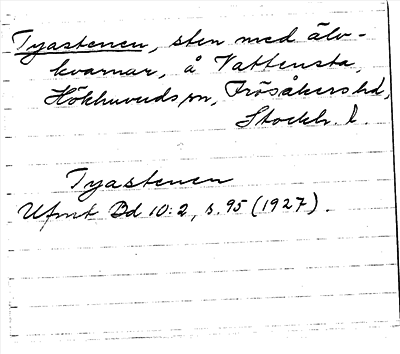 Tyastenen, sten med älv-
kvarnar, å Vattensta,
Hökhuvuds sn, Frösåkers hd,
Stockh. l.
Tyastenen
Ufmt Bd 10:2, s. 95 (1927).